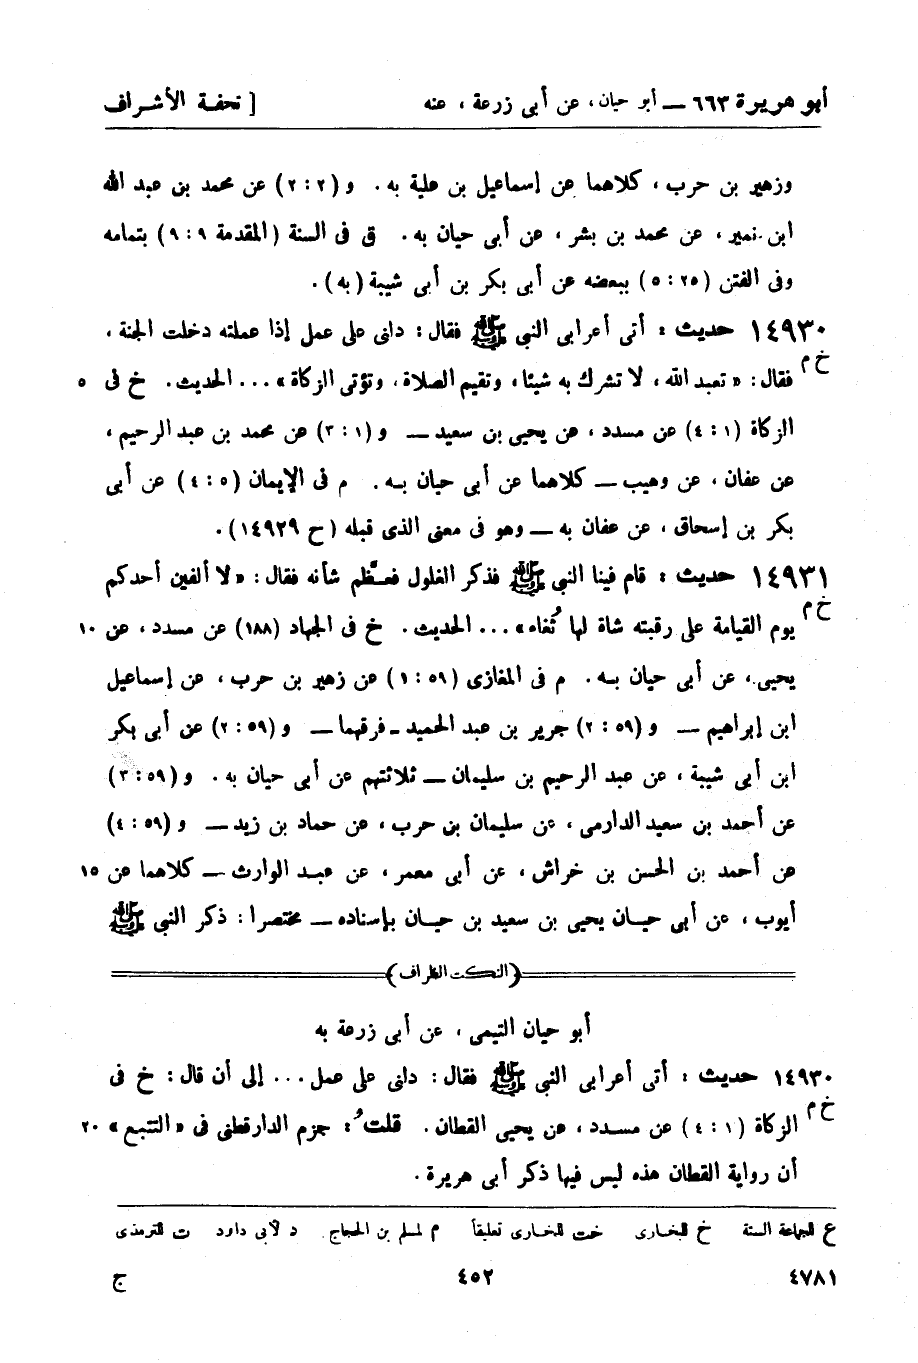 أبو هريرة ٦٦٣ — أبو حيان، عن أبي زرعة، عنه [ تحفة الأشراف
وزهير بن حرب، كلاهما عن إسماعيل بن علية به. و (٢ : ٢) عن محمد بن عبد الله
ابن نمير، عن محمد بن بشر، عن أبي حيان به. ق في السنة (المقدمة ٩ : ٩) بتمامه
وفي الفتن (٢٥ : ٥) ببعضه عن أبي بكر بن أبي شيبة (به).
١٤٩٣٠ حديث : أتى أعرابي النبي ﷺ فقال: دلني على عمل إذا عملته دخلت الجنة،
خ م فقال: «تعبد الله، لا تشرك به شيئا، وتقيم الصلاة، وتؤتي الزكاة» ... الحديث. خ في ٥
الزكاة (١ : ٤) عن مسدد، عن يحيى بن سعيد — و (١ : ٣) عن محمد بن عبد الرحيم،
عن عفان، عن وهيب — كلاهما عن أبي حيان به. م في الإيمان (٥ : ٤) عن أبي
بكر بن إسحاق، عن عفان به — وهو في معنى الذي قبله (ح ١٤٩٢٩).
١٤٩٣١ حديث : قام فينا النبي ﷺ فذكر الغلول فعظّم شأنه فقال: «لا ألفين أحدكم
خ م يوم القيامة على رقبته شاة لها ثُغاء» ... الحديث. خ في الجهاد (١٨٨) عن مسدد، عن ١٠
يحيى، عن أبي حيان به. م في المغازي (٥٩ : ١) عن زهير بن حرب، عن إسماعيل
ابن إبراهيم — و (٥٩ : ٢) جرير بن عبد الحميد - فرقهما — و (٥٩ : ٢) عن أبي بكر
ابن أبي شيبة، عن عبد الرحيم بن سليمان — ثلاثتهم عن أبي حيان به. و (٥٩ : ٣)
عن أحمد بن سعيد الدارمي، عن سليمان بن حرب، عن حماد بن زيد — و (٥٩ : ٤)
عن أحمد بن الحسن بن خراش، عن أبي معمر، عن عبد الوارث — كلاهما عن ١٥
أيوب، عن أبي حيان يحيى بن سعيد بن حيان بإسناده — مختصرا : ذكر النبي ﷺ
(النكت الظراف)
أبو حيان التيمي، عن أبي زرعة به
١٤٩٣٠ حديث : أتى أعرابي النبي ﷺ فقال: دلني على عمل ... إلى أن قال: خ في
خ م الزكاة (١ : ٤) عن مسدد، عن يحيى القطان. قلتُ: جزم الدارقطني في «التتبع» ٢٠
أن رواية القطان هذه ليس فيها ذكر أبي هريرة.
ع للجماعة الستة خ للبخاري خت للبخاري تعليقاً م لمسلم بن الحجاج د لأبي داود ت للترمذي
٤٧٨١ ٤٥٢ ج